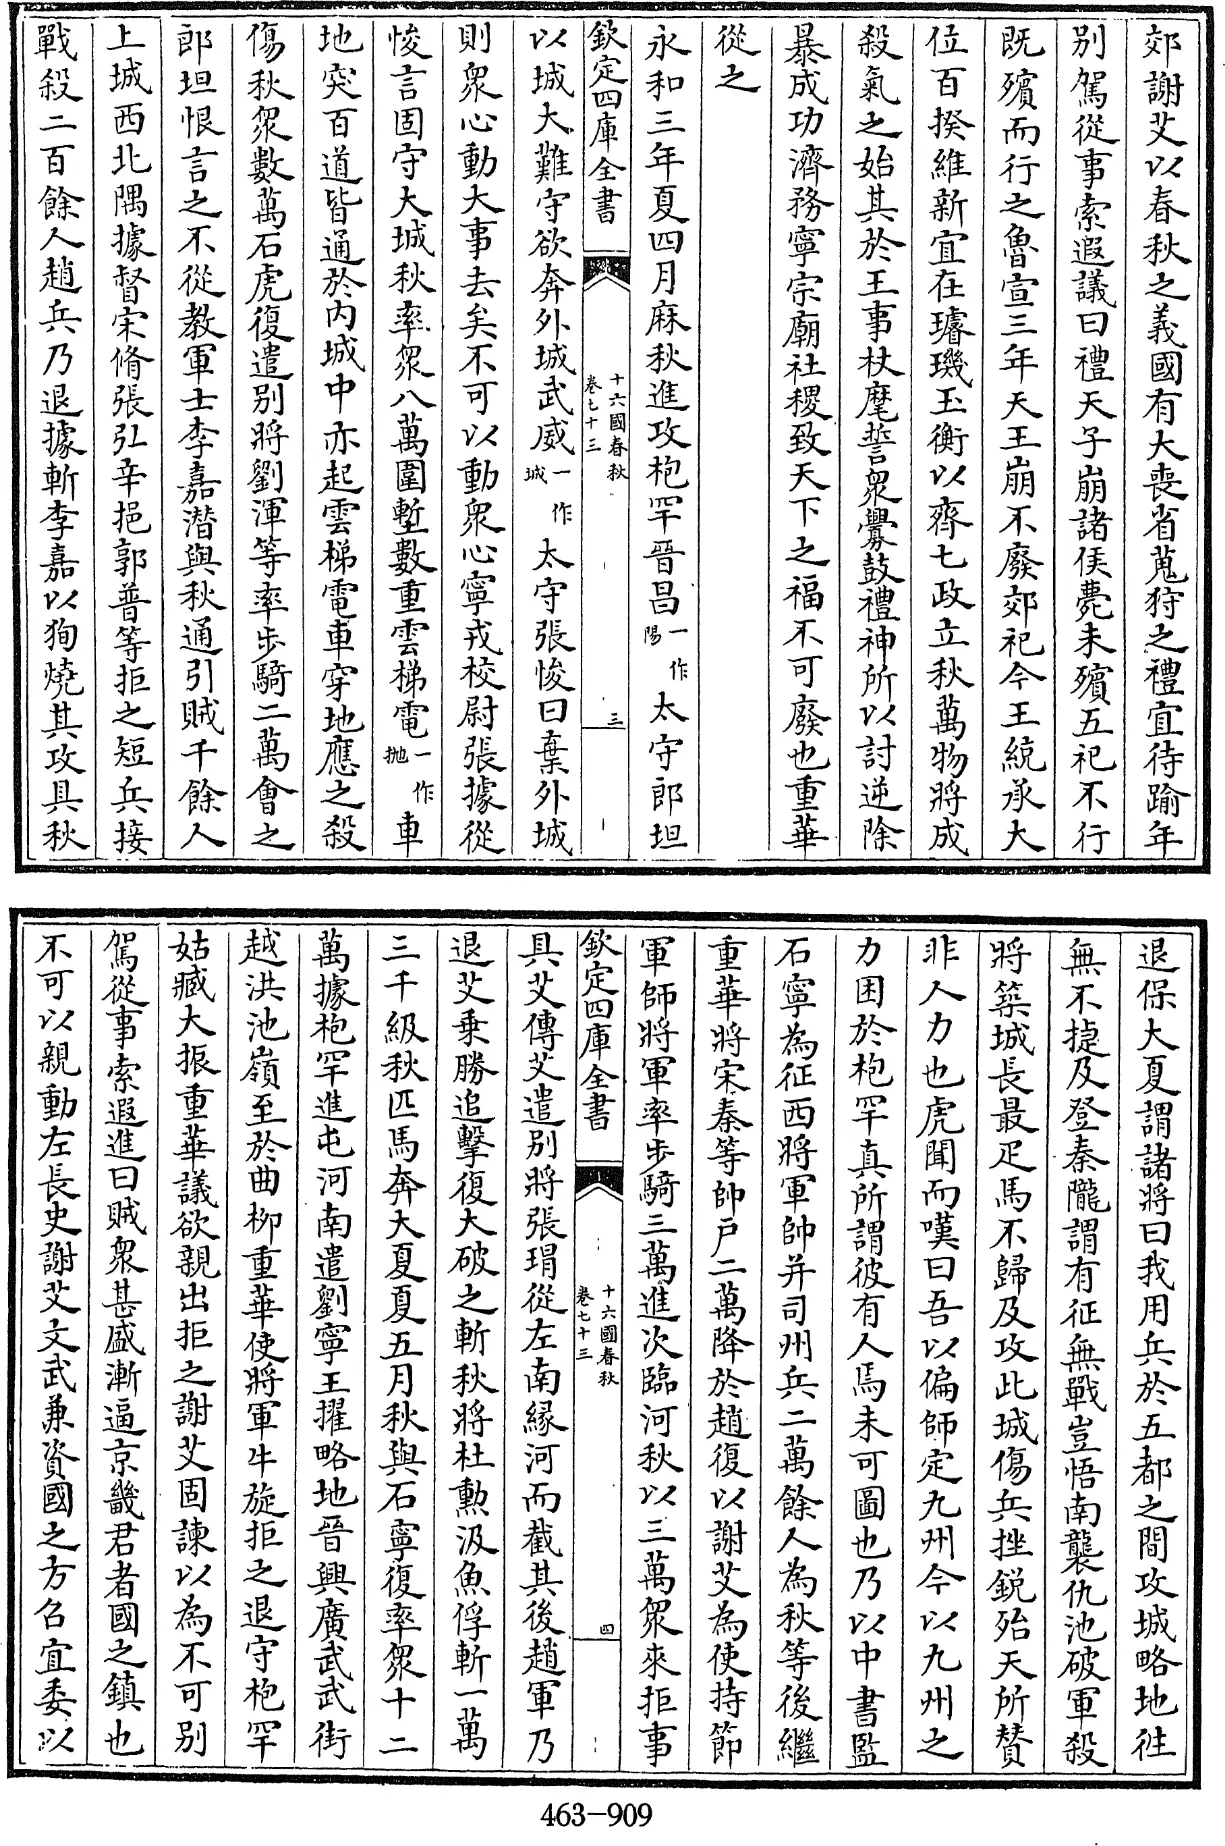 郊謝艾以春秋之義國有大喪省蒐狩之禮宜待踰年
别駕從事索遐議曰禮天子崩諸侯薨未殯五祀不行
既殯而行之魯宣三年天王崩不廢郊祀今王統承大
位百揆維新宜在璿璣玉衡以齊七政立秋萬物將成
殺氣之始其於王事杖麾誓衆釁鼓禮神所以討逆除
暴成功濟務寧宗廟社稷致天下之福不可廢也重華
從之
永和三年夏四月麻秋進攻枹罕晉昌一作陽太守郎坦
欽定四庫全書
十六國春秋
卷七十三
三
以城大難守欲奔外城武威一作城太守張悛曰棄外城
則衆心動大事去矣不可以動衆心寧戎校尉張據從
悛言固守大城秋率衆八萬圍塹數重雲梯電一作拋車
地突百道皆通於内城中亦起雲梯電車穿地應之殺
傷秋衆數萬石虎復遣别將劉渾等率步騎二萬會之
郎坦恨言之不從教軍士李嘉潛與秋通引賊千餘人
上城西北隅據督宋脩張弘辛挹郭普等拒之短兵接
戰殺二百餘人趙兵乃退據斬李嘉以狥燒其攻具秋
退保大夏謂諸將曰我用兵於五都之間攻城略地徃
無不捷及登秦隴謂有征無戰豈悟南襲仇池破軍殺
將築城長最疋馬不歸及攻此城傷兵挫銳殆天所贊
非人力也虎聞而嘆曰吾以偏師定九州今以九州之
力困於枹罕真所謂彼有人焉未可圖也乃以中書監
石寧為征西將軍帥并司州兵二萬餘人為秋等後繼
重華將宋秦等帥戸二萬降於趙復以謝艾為使持節
軍師將軍率步騎三萬進次臨河秋以三萬衆來拒事
欽定四庫全書
十六國春秋
卷七十三
四
具艾傳艾遣别將張瑁從左南緣河而截其後趙軍乃
退艾乗勝追擊復大破之斬秋將杜勲汲魚俘斬一萬
三千級秋匹馬奔大夏夏五月秋與石寧復率衆十二
萬據枹罕進屯河南遣劉寧王擢略地晉興廣武武街
越洪池嶺至於曲柳重華使將軍牛旋拒之退守枹罕
姑臧大振重華議欲親出拒之謝艾固諫以為不可别
駕從事索遐進曰賊衆甚盛漸逼京畿君者國之鎮也
不可以親動左長史謝艾文武兼資國之方召宜委以
463-909